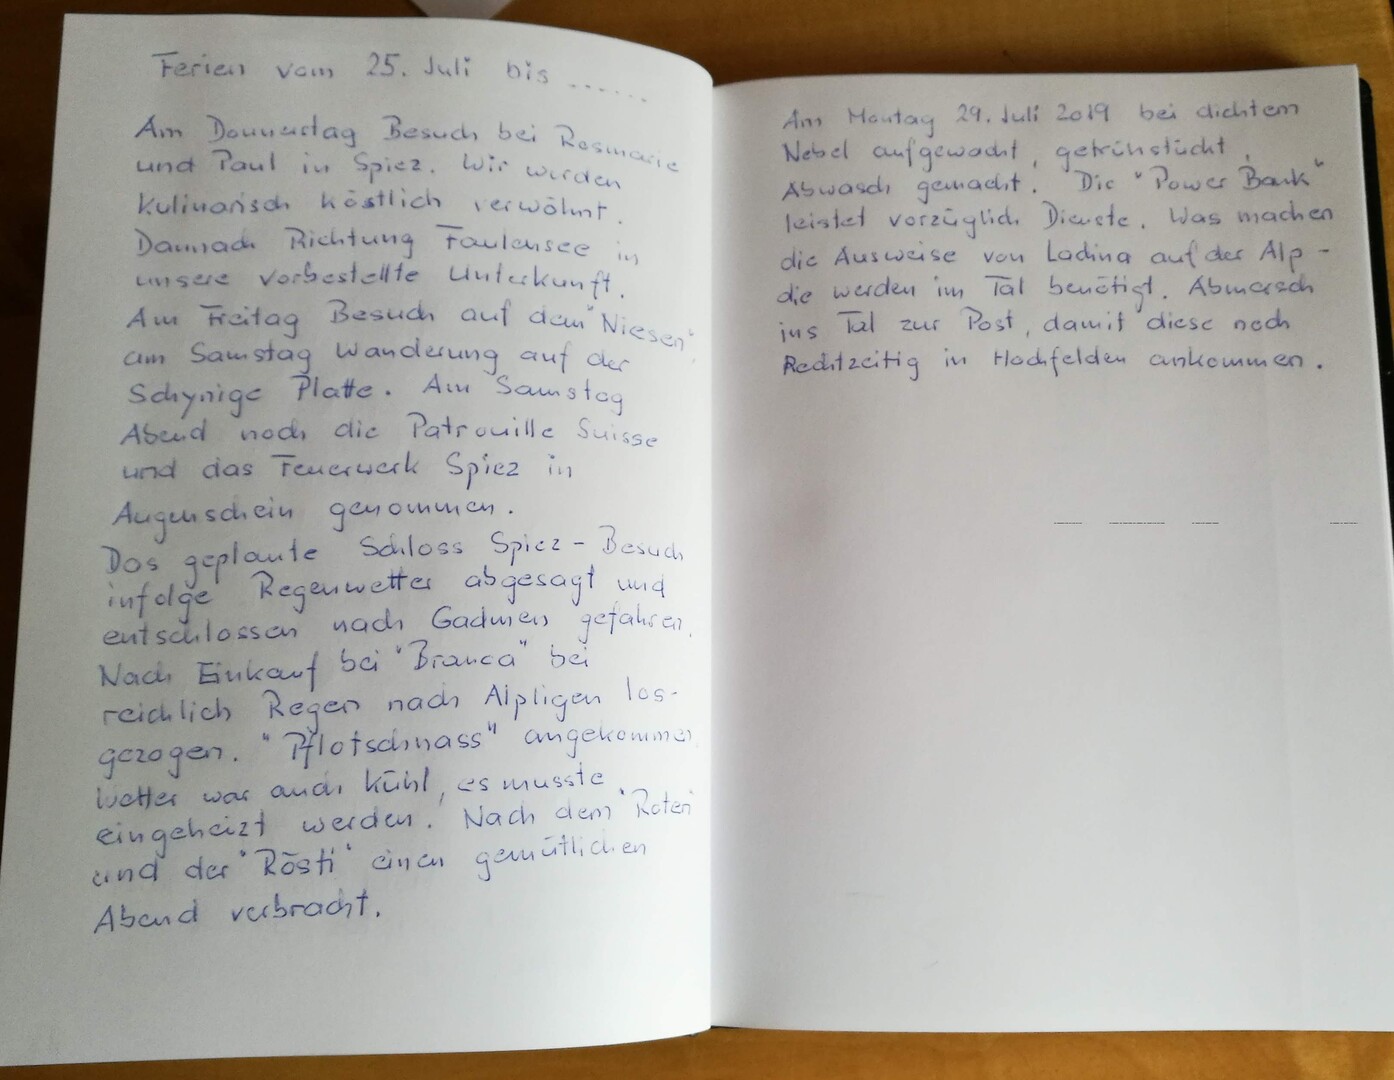 Ferien vom 25. Juli bis ......
Am Donnerstag Besuch bei Rosmarie
und Paul in Spiez. Wir wurden
kulinarisch köstlich verwöhnt.
Dannach Richtung Faulensee in
unsere vorbestellte Unterkunft.
Am Freitag Besuch auf dem "Niesen",
am Samstag Wanderung auf der
Schynige Platte. Am Samstag
Abend noch die Patrouille Suisse
und das Feuerwerk Spiez in
Augenschein genommen.
Das geplante Schloss Spiez - Besuch
infolge Regenwetter abgesagt und
entschlossen nach Gadmen gefahren.
Nach Einkauf bei "Branca" bei
reichlich Regen nach Alpligen los-
gezogen. "Pflotschnass" angekommen
Wetter war auch kühl, es musste
eingeheizt werden. Nach dem "Roten"
und der "Rösti" einen gemütlichen
Abend verbracht.
Am Montag 29. Juli 2019 bei dichtem
Nebel aufgewacht, gefrühstückt,
Abwasch gemacht. Die "Power Bank"
leistet vorzüglich Dienste. Was machen
die Ausweise von Ladina auf der Alp -
die werden im Tal benötigt. Abmarsch
ins Tal zur Post, damit diese noch
Rechtzeitig in Hochfelden ankommen.